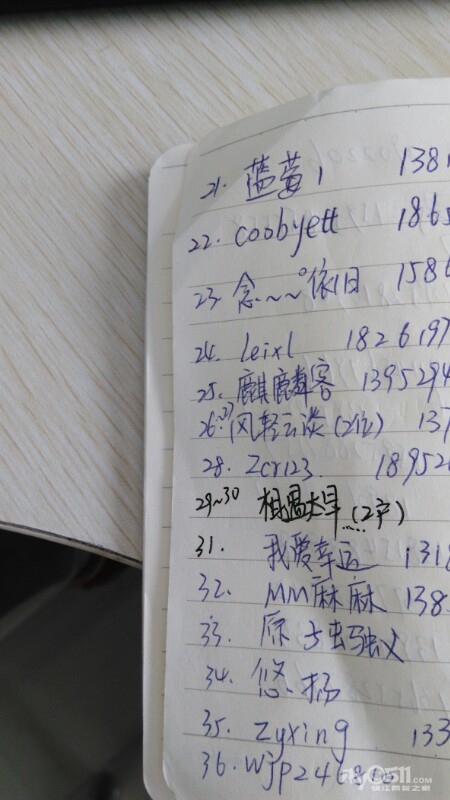 21. 蓝莓1 1381
22. coobyett 1865
23. 念~~°依旧 1586
24. leixl 1826197
25. 麒麟客 1395294
26.27 风轻云淡(2位) 137
28. Zcr123. 18952
29~30 相遇太早 (2位)
31. 我爱幸运 1318
32. MM麻麻 138
33. 原
34. 悠.扬
35. zyxing 133
36. wjp246810